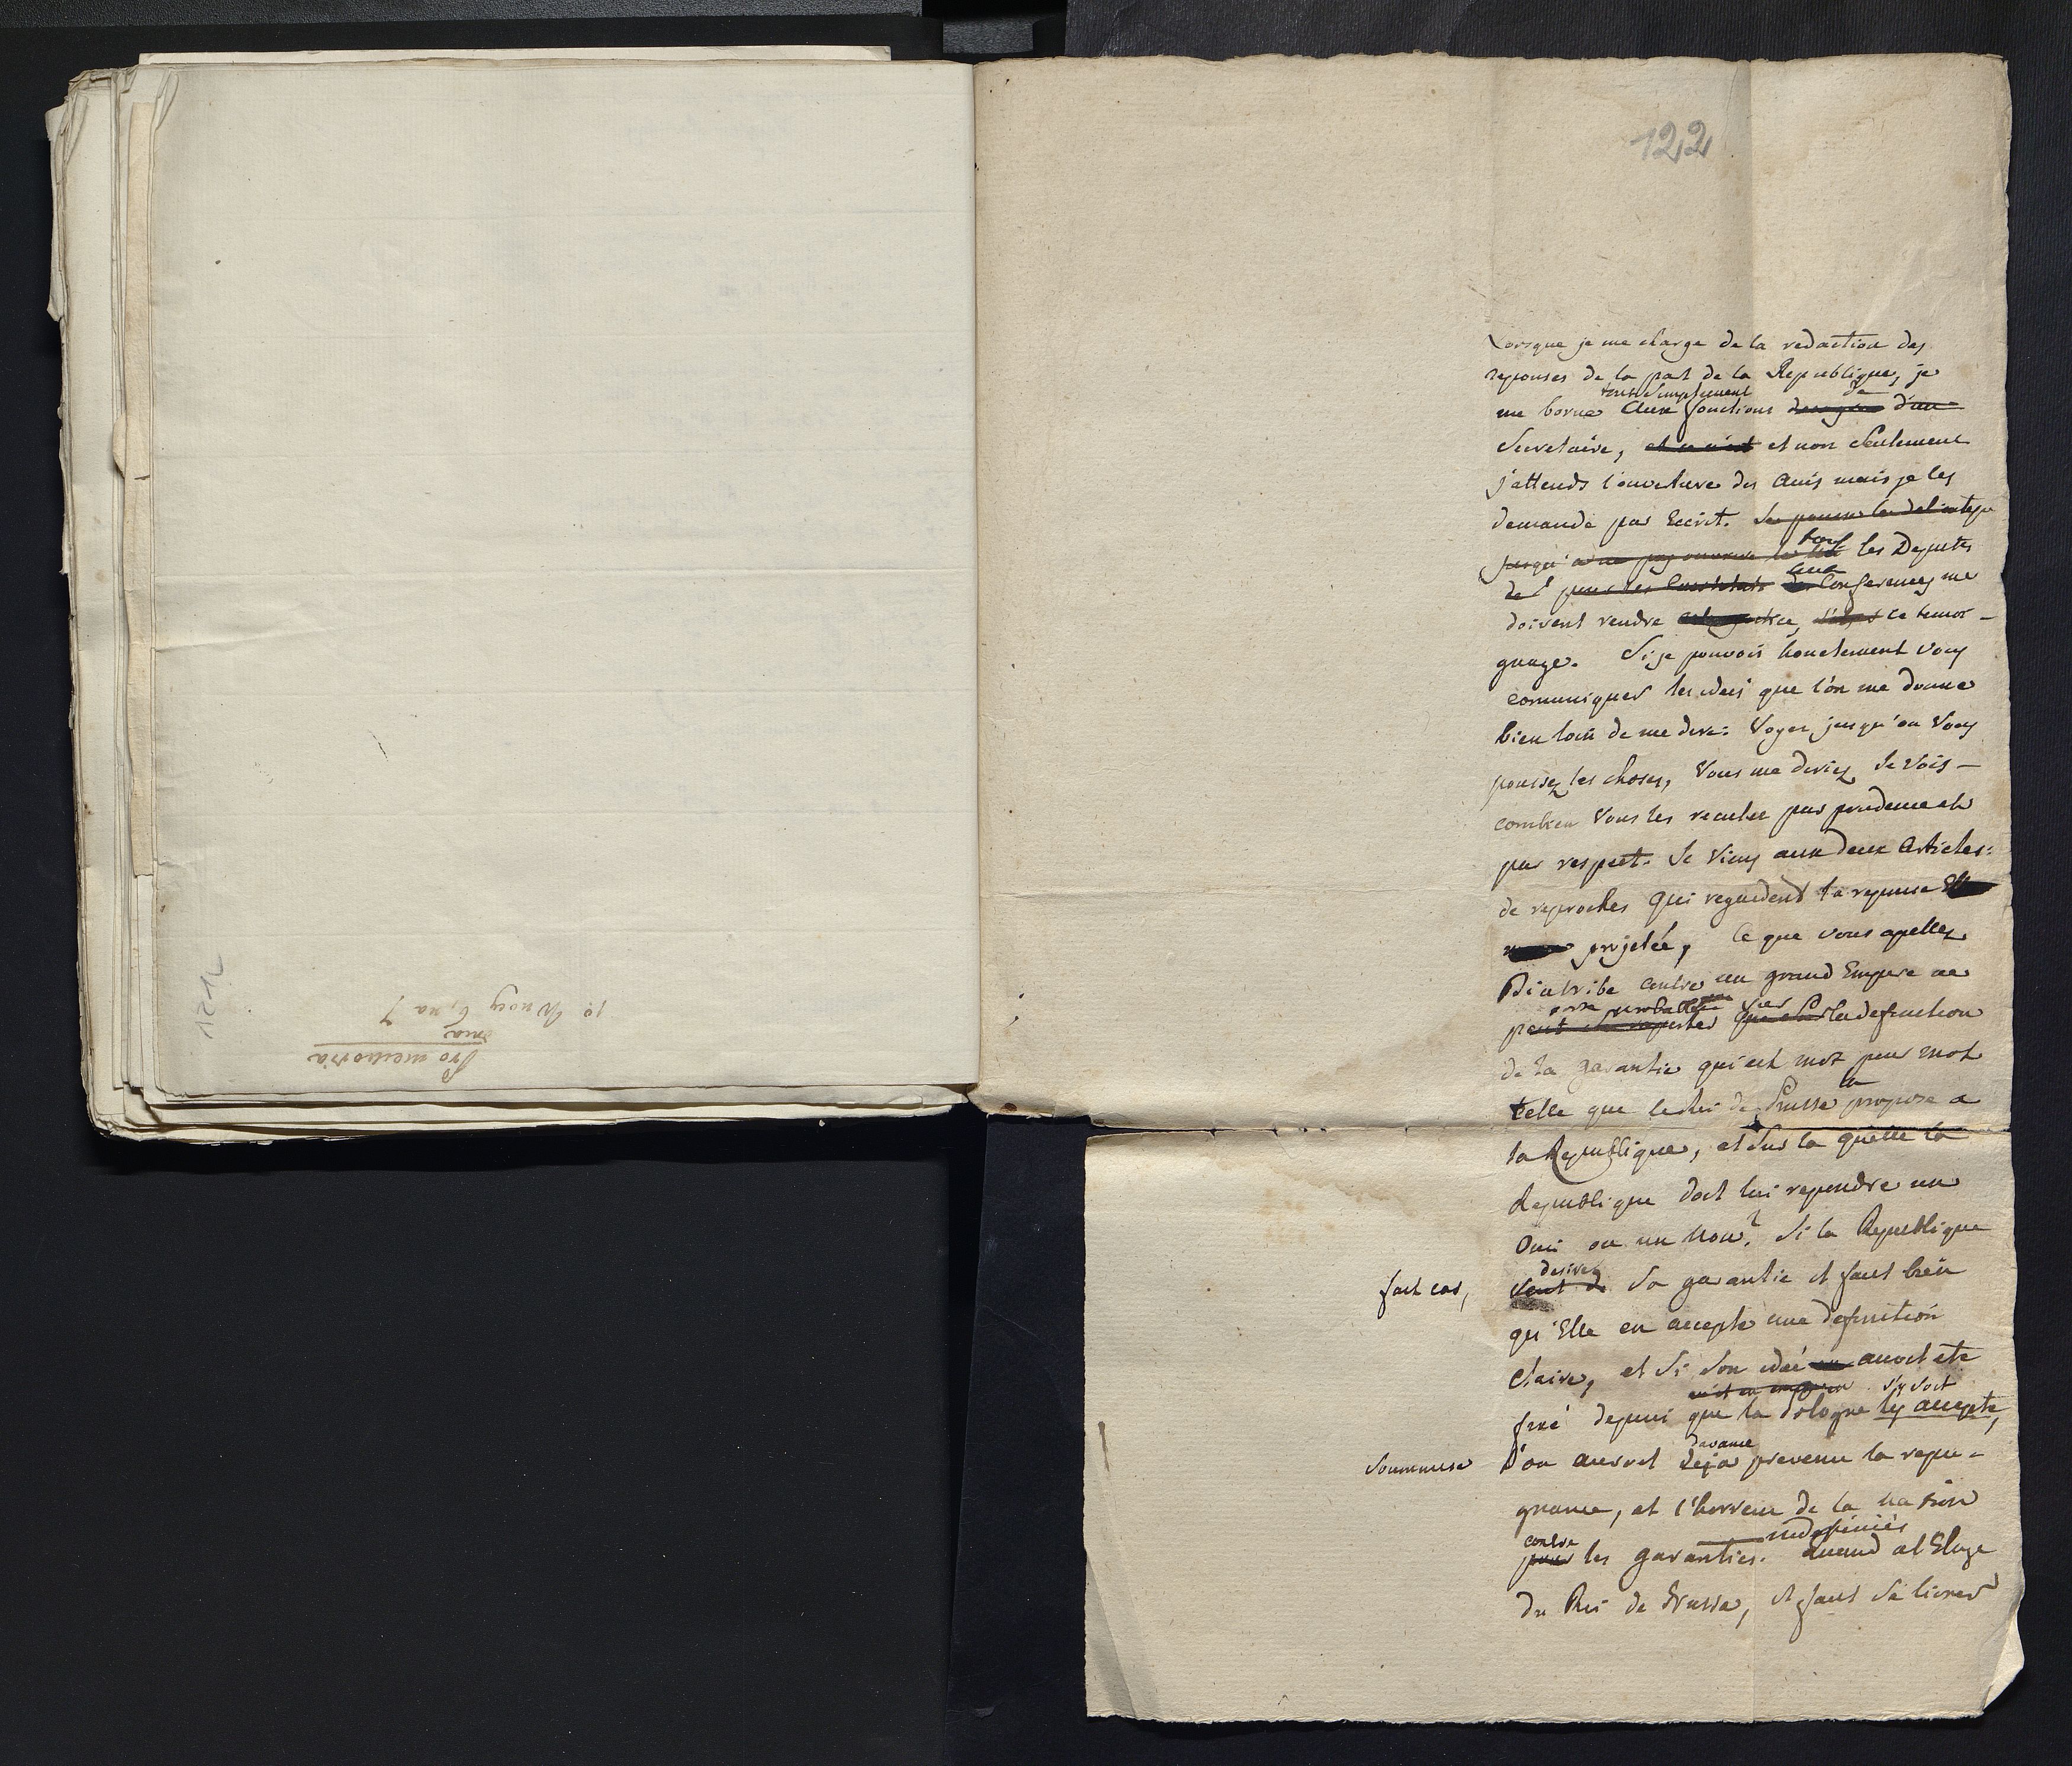 121
Pro memoria
ma
10 w nocy 6, na 7
122
Lorsque je me charge de la redaction des
reponses de la part de la Republique, je
tout simplement de
me borne aux fonctions d'un
Secretaire, et non seulement
j'attends l'ouverture des avis mais je les
demande par Ecrit.
jusqu'a ne pas tous les Deputés
aux Conferences me
doivent rendre ce temoi-
gnage. Si je pouvois honetement vous
comuniquer les ideés que l'on me donne
bien loin de me dire: Voyez jusqu'ou Vous
poussez les choses, Vous me diriez Je vois
combien Vous les reculez par prudence et
par respect. Je viens aux deux Articles
de reproches qui regardent la reponse
projetée, Ce que vous apellez
Diatribe contre un grand Empire ne
porte sur la definition
de la garantie qui est mot pour mot
la
telle que le Roi de Prusse propose a
la Republique, et sur la quelle la
Republique doit lui repondre un
Oui ou un Non? Si la Republique
desire
fait cas, veut de sa garantie il faut bien
qu'Elle en accepte une definition
claire, et si son ideé avoit eté
s'y voit
fixé depuis que la Pologne
davance
soummise l'on auroit deja prevenu la repu-
gnance, et l'horreur de la nation
contre indefinies
pour les garanties. quand a l'Eloge
du Roi de Prusse, il faut se livrer